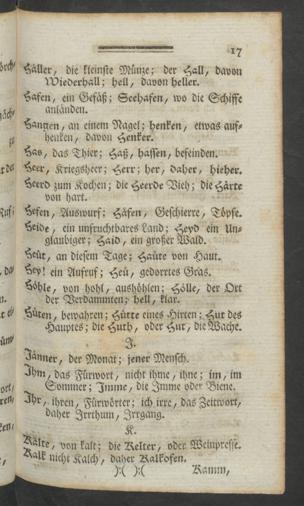 17
Häller, die kleinste Münze; der Hall, davon
Wiederhall; hell, davon heller.
Hafen, ein Gefäß; Seehafen, wo die Schiffe
anländen.
Hangen, an einem Nagel; henken, etwas auf-
henken, davon Henker.
Has, das Thier; Haß, hassen, befeinden.
Heer, Kriegsheer; Herr; her, daher, hieher.
Heerd zum Kochen; die Heerde Vieh; die Härte
von hart.
Hefen, Auswurf; Häfen, Geschierre, Töpfe.
Heide, ein unfruchtbares Land; Heyd ein Un-
glaubiger; Haid, ein großer Wald.
Heüt, an diesem Tage; Haüte von Haut.
Hey! ein Aufruf; Heü, gedorrtes Gras.
Höhle, von hohl, aushöhlen; Hölle, der Ort
der Verdammten; hell, klar.
Hüten, bewahren; Hütte eines Hirten; Hut des
Hauptes; die Huth, oder Hut, die Wache.
J.
Jänner, der Monat; jener Mensch.
Ihm, das Fürwort, nicht ihme, ihne; im, im
Sommer; Imme, die Imme oder Biene.
Ihr, ihren, Fürwörter; ich irre, das Zeitwort,
daher Irrthum, Irrgang.
K.
Kälte, von kalt; die Kelter, oder Weinpresse.
Kalk nicht Kalch, daher Kalkofen.
):( ):( Kamm,